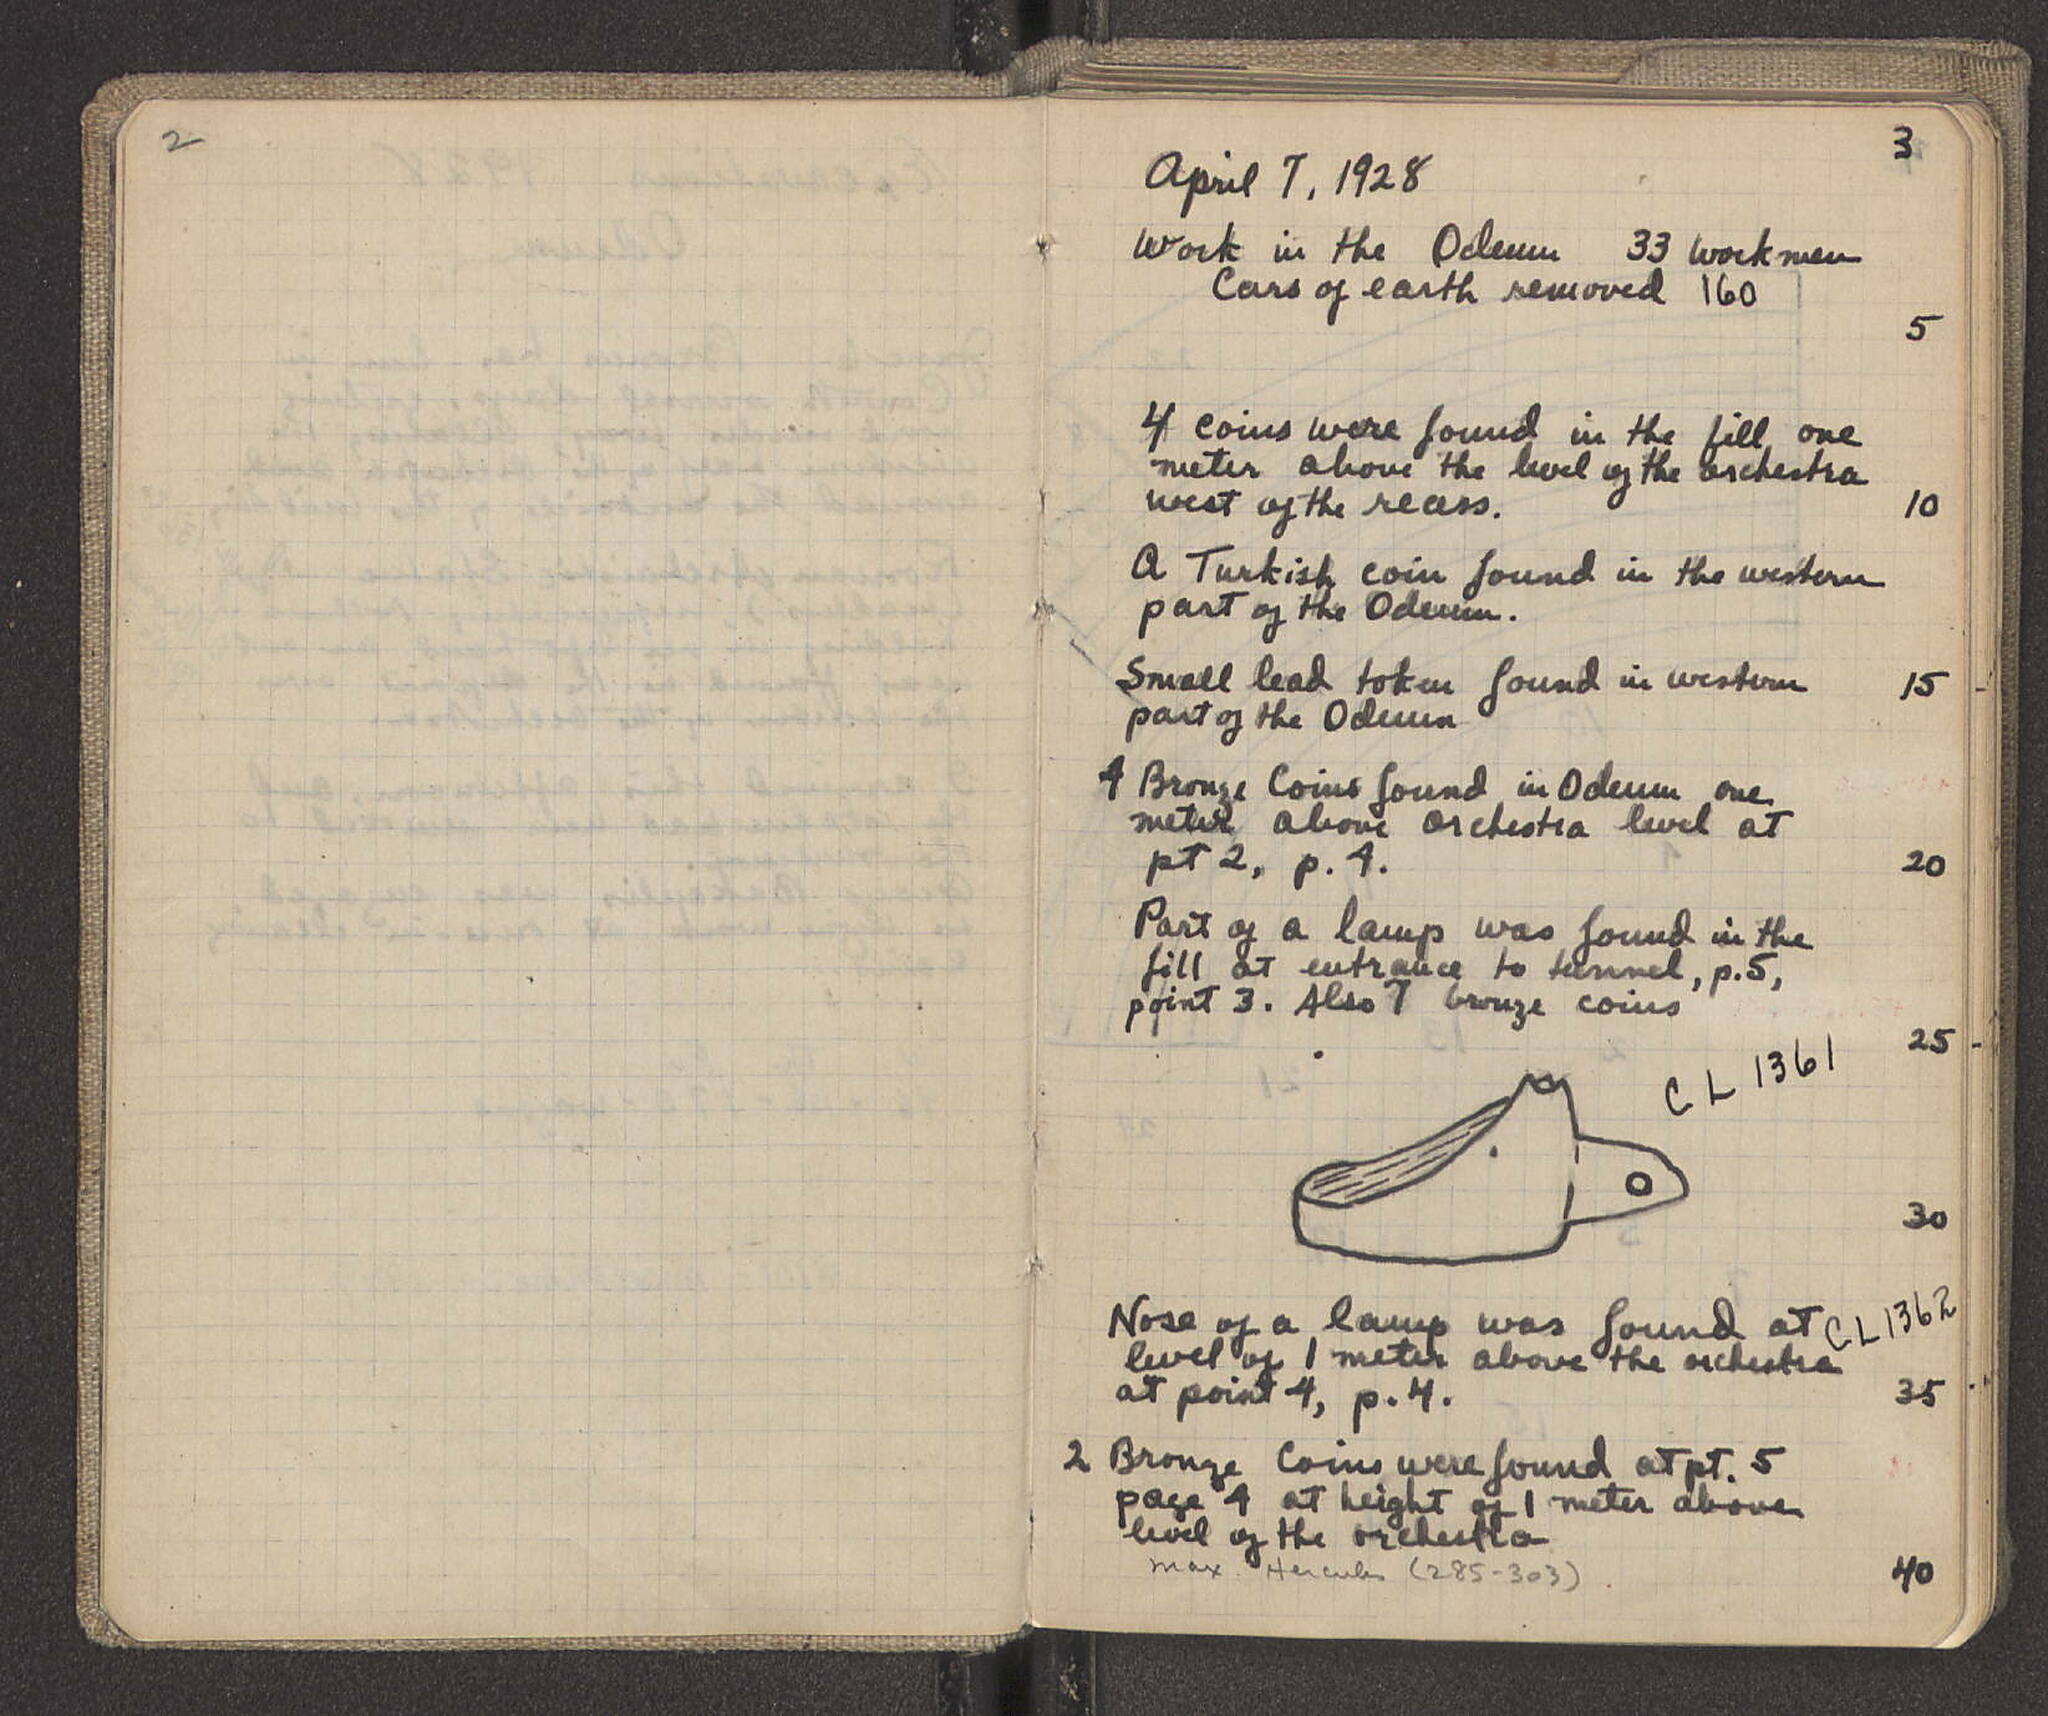 2
3
April 7, 1928
Work in the Odeum 33 workmen
Cars of earth removed 160
5
4 coins were found in the fill one
meter above the level of the orchestra
west of the recess.
10
A Turkish coin found in the western
part of the Odeum.
Small lead token found in western
15
part of the Odeum
4 Bronze Coins found in Odeum one
meter above orchestra level at
pt 2, p. 4.
20
Part of a lamp was found in the
fill at entrance to tunnel, p.5,
point 3. Also 7 bronze coins
25
CL 1361
30
Nose of a lamp was found at
CL 1362
level of 1 meter above the orchestra
at point 4, p. 4.
35
2 Bronze Coins were found at pt. 5
page 4 at height of 1 meter above
level of the orchestra
Max. Hercules (285-303)
40